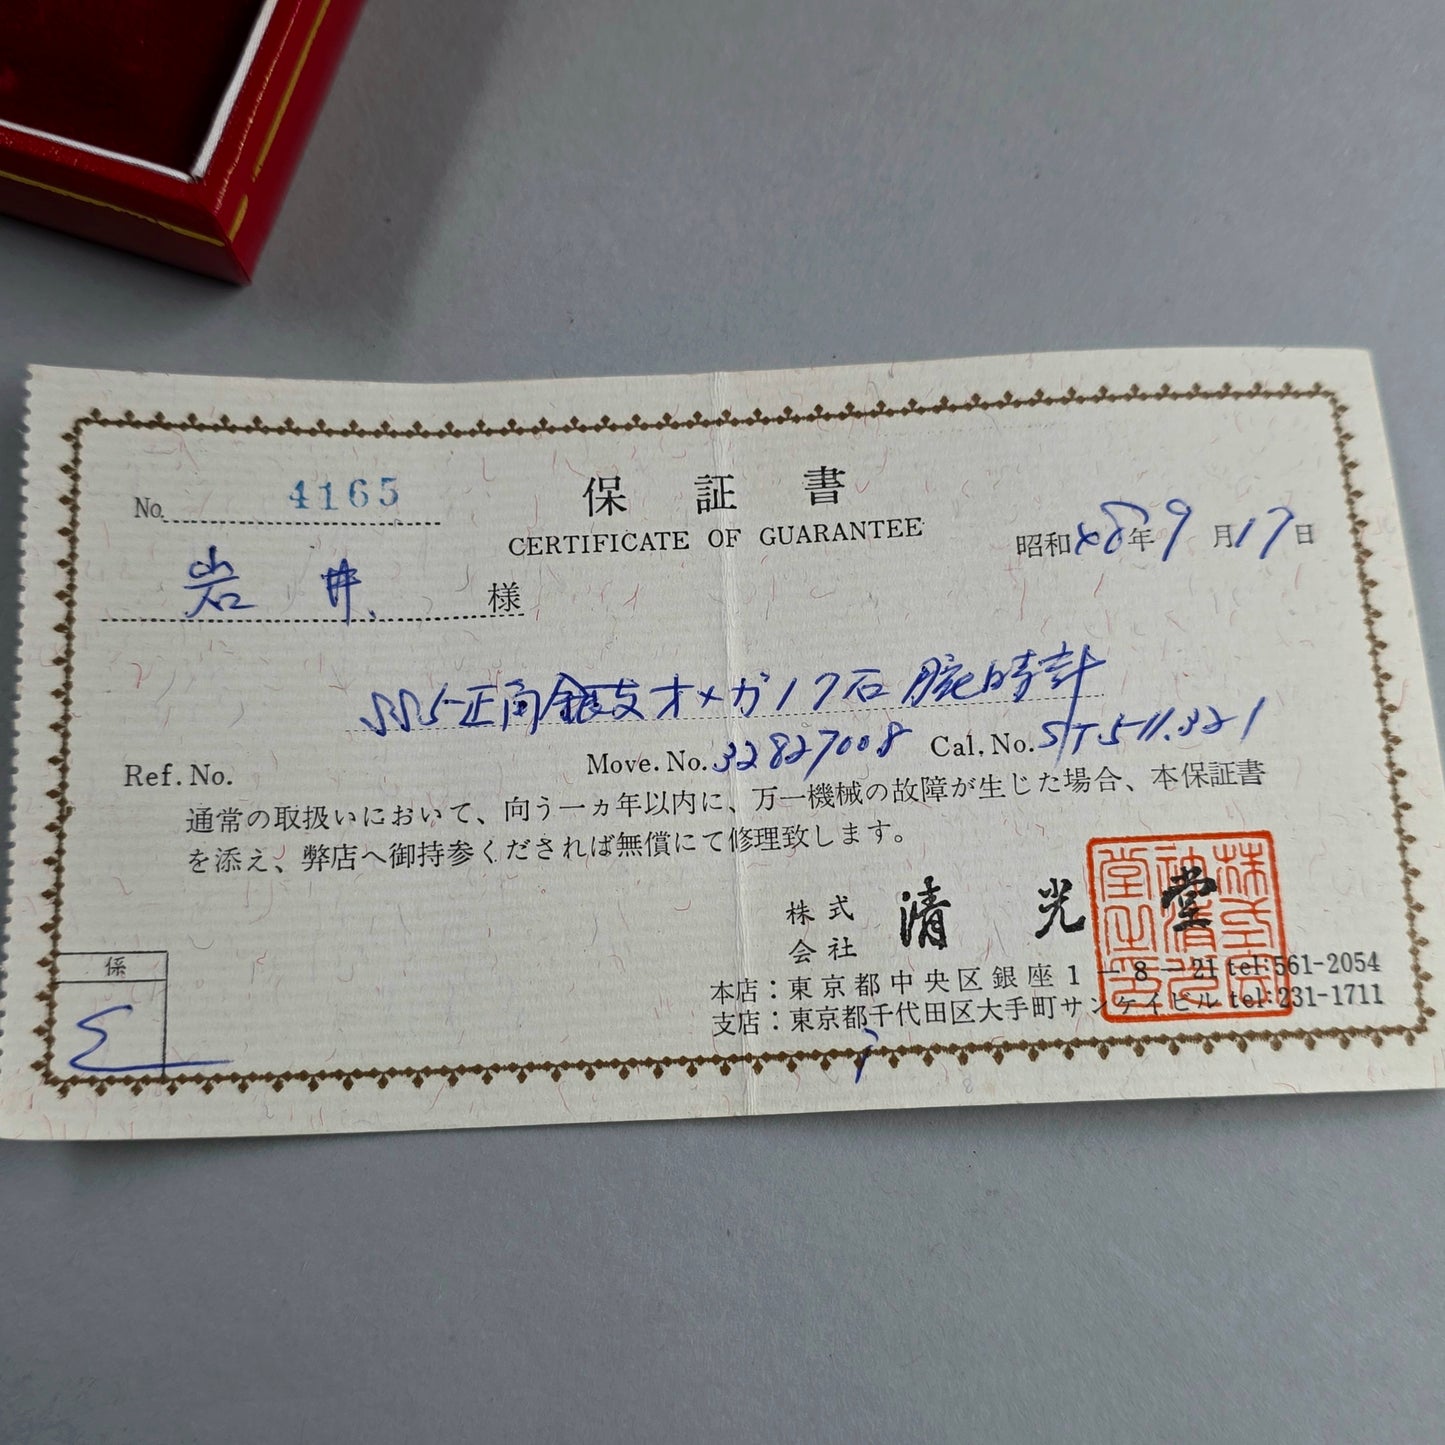 No. 4165
保証書
CERTIFICATE OF GUARANTEE
昭和48年9月17日
岩井 様
オメガ17石腕時計
Ref. No.
Move. No. 32827008 Cal. No. ST511.321
通常の取扱いにおいて、向う一ヵ年以内に、万一機械の故障が生じた場合、本保証書
を添え、弊店へ御持参くだされば無償にて修理致します。
株式会社 清光堂
本店：東京都中央区銀座1－8－21 tel:561-2054
支店：東京都千代田区大手町サンケイビル tel:231-1711
係